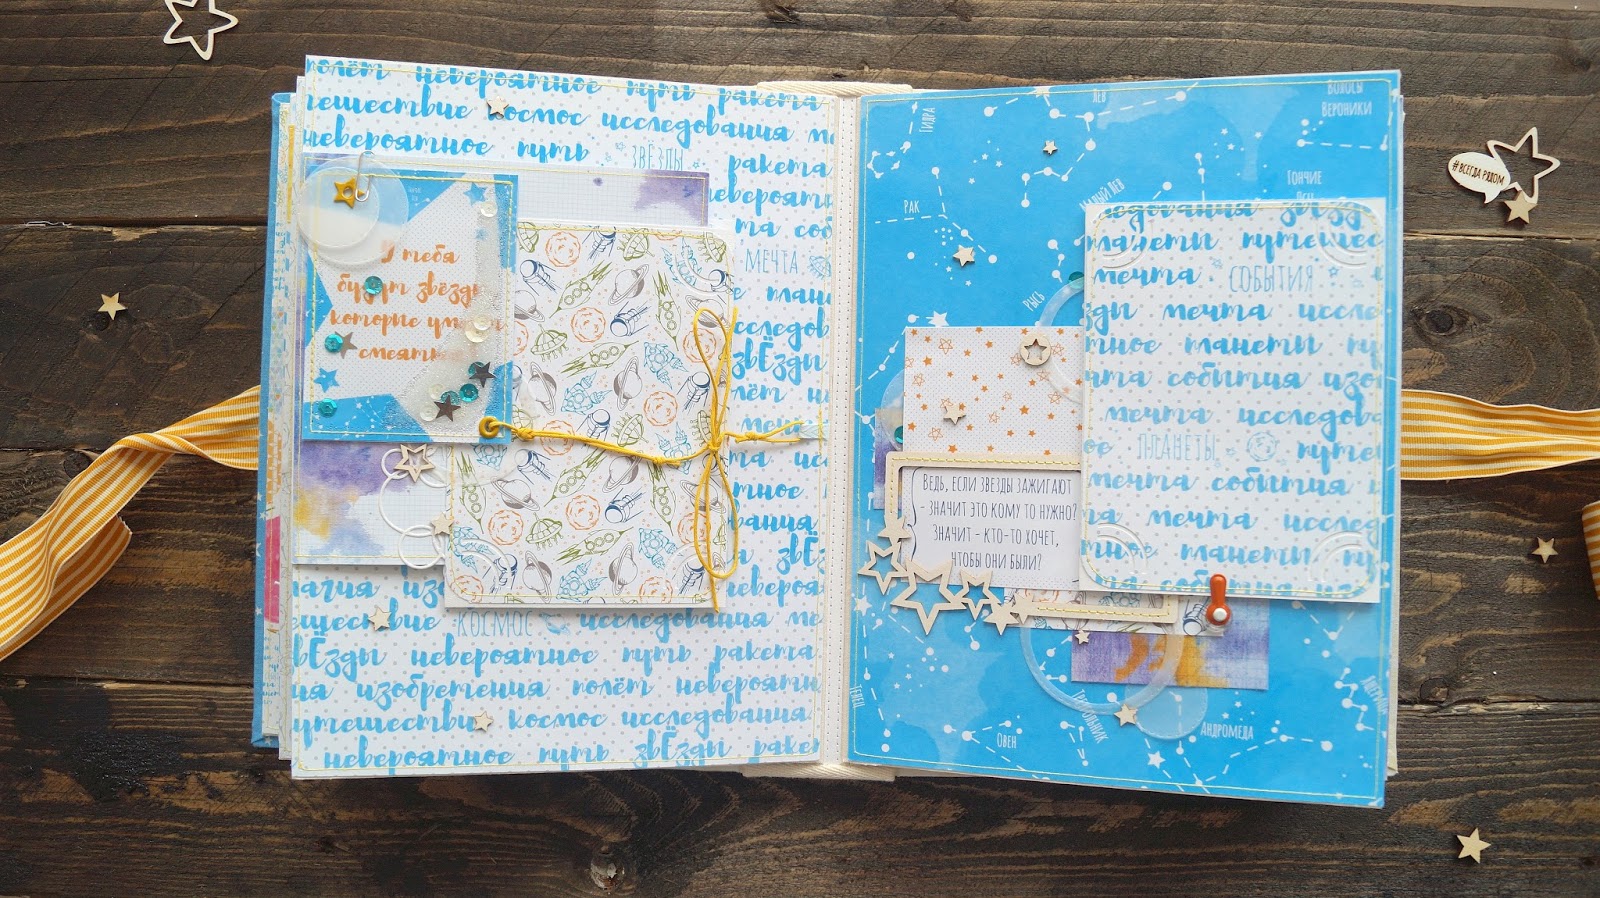 полёт невероятное путь ракета
космос исследования
невероятное путь звёзды ракета
невероятн
МЕЧТА
У тебя
будут звёзды
которые умеют
смеяться
космос исследования ме
звЁзды невероятное путь ракета
ия изобретения полёт невероятн
утешестви космос исследования.
невероятное путь звЁзды ракет
ГИДРА
ЛЕВ
ВОЛОСЫ
ВЕРОНИКИ
ГОНЧИЕ
ПСЫ
РАК
МАЛЫЙ ЛЕВ
РЫСЬ
ледования звЁзд
планеты путешес
мечта СОБЫТИЯ
зды мечта иссле
тное планеты пу
чта события изо
мечта исследова
ное ПЛАНЕТЫ путе
мечта события и
та мечта исслед
тное планеты пу
та события
ВЕДЬ, ЕСЛИ ЗВЕЗДЫ ЗАЖИГАЮТ
- ЗНАЧИТ ЭТО КОМУ ТО НУЖНО?
ЗНАЧИТ - КТО-ТО ХОЧЕТ,
ЧТОБЫ ОНИ БЫЛИ?
ТЕЛЕЦ
ОВЕН
ТРЕУГОЛЬНИК
АНДРОМЕДА
#ВСЕГДА РЯДОМ